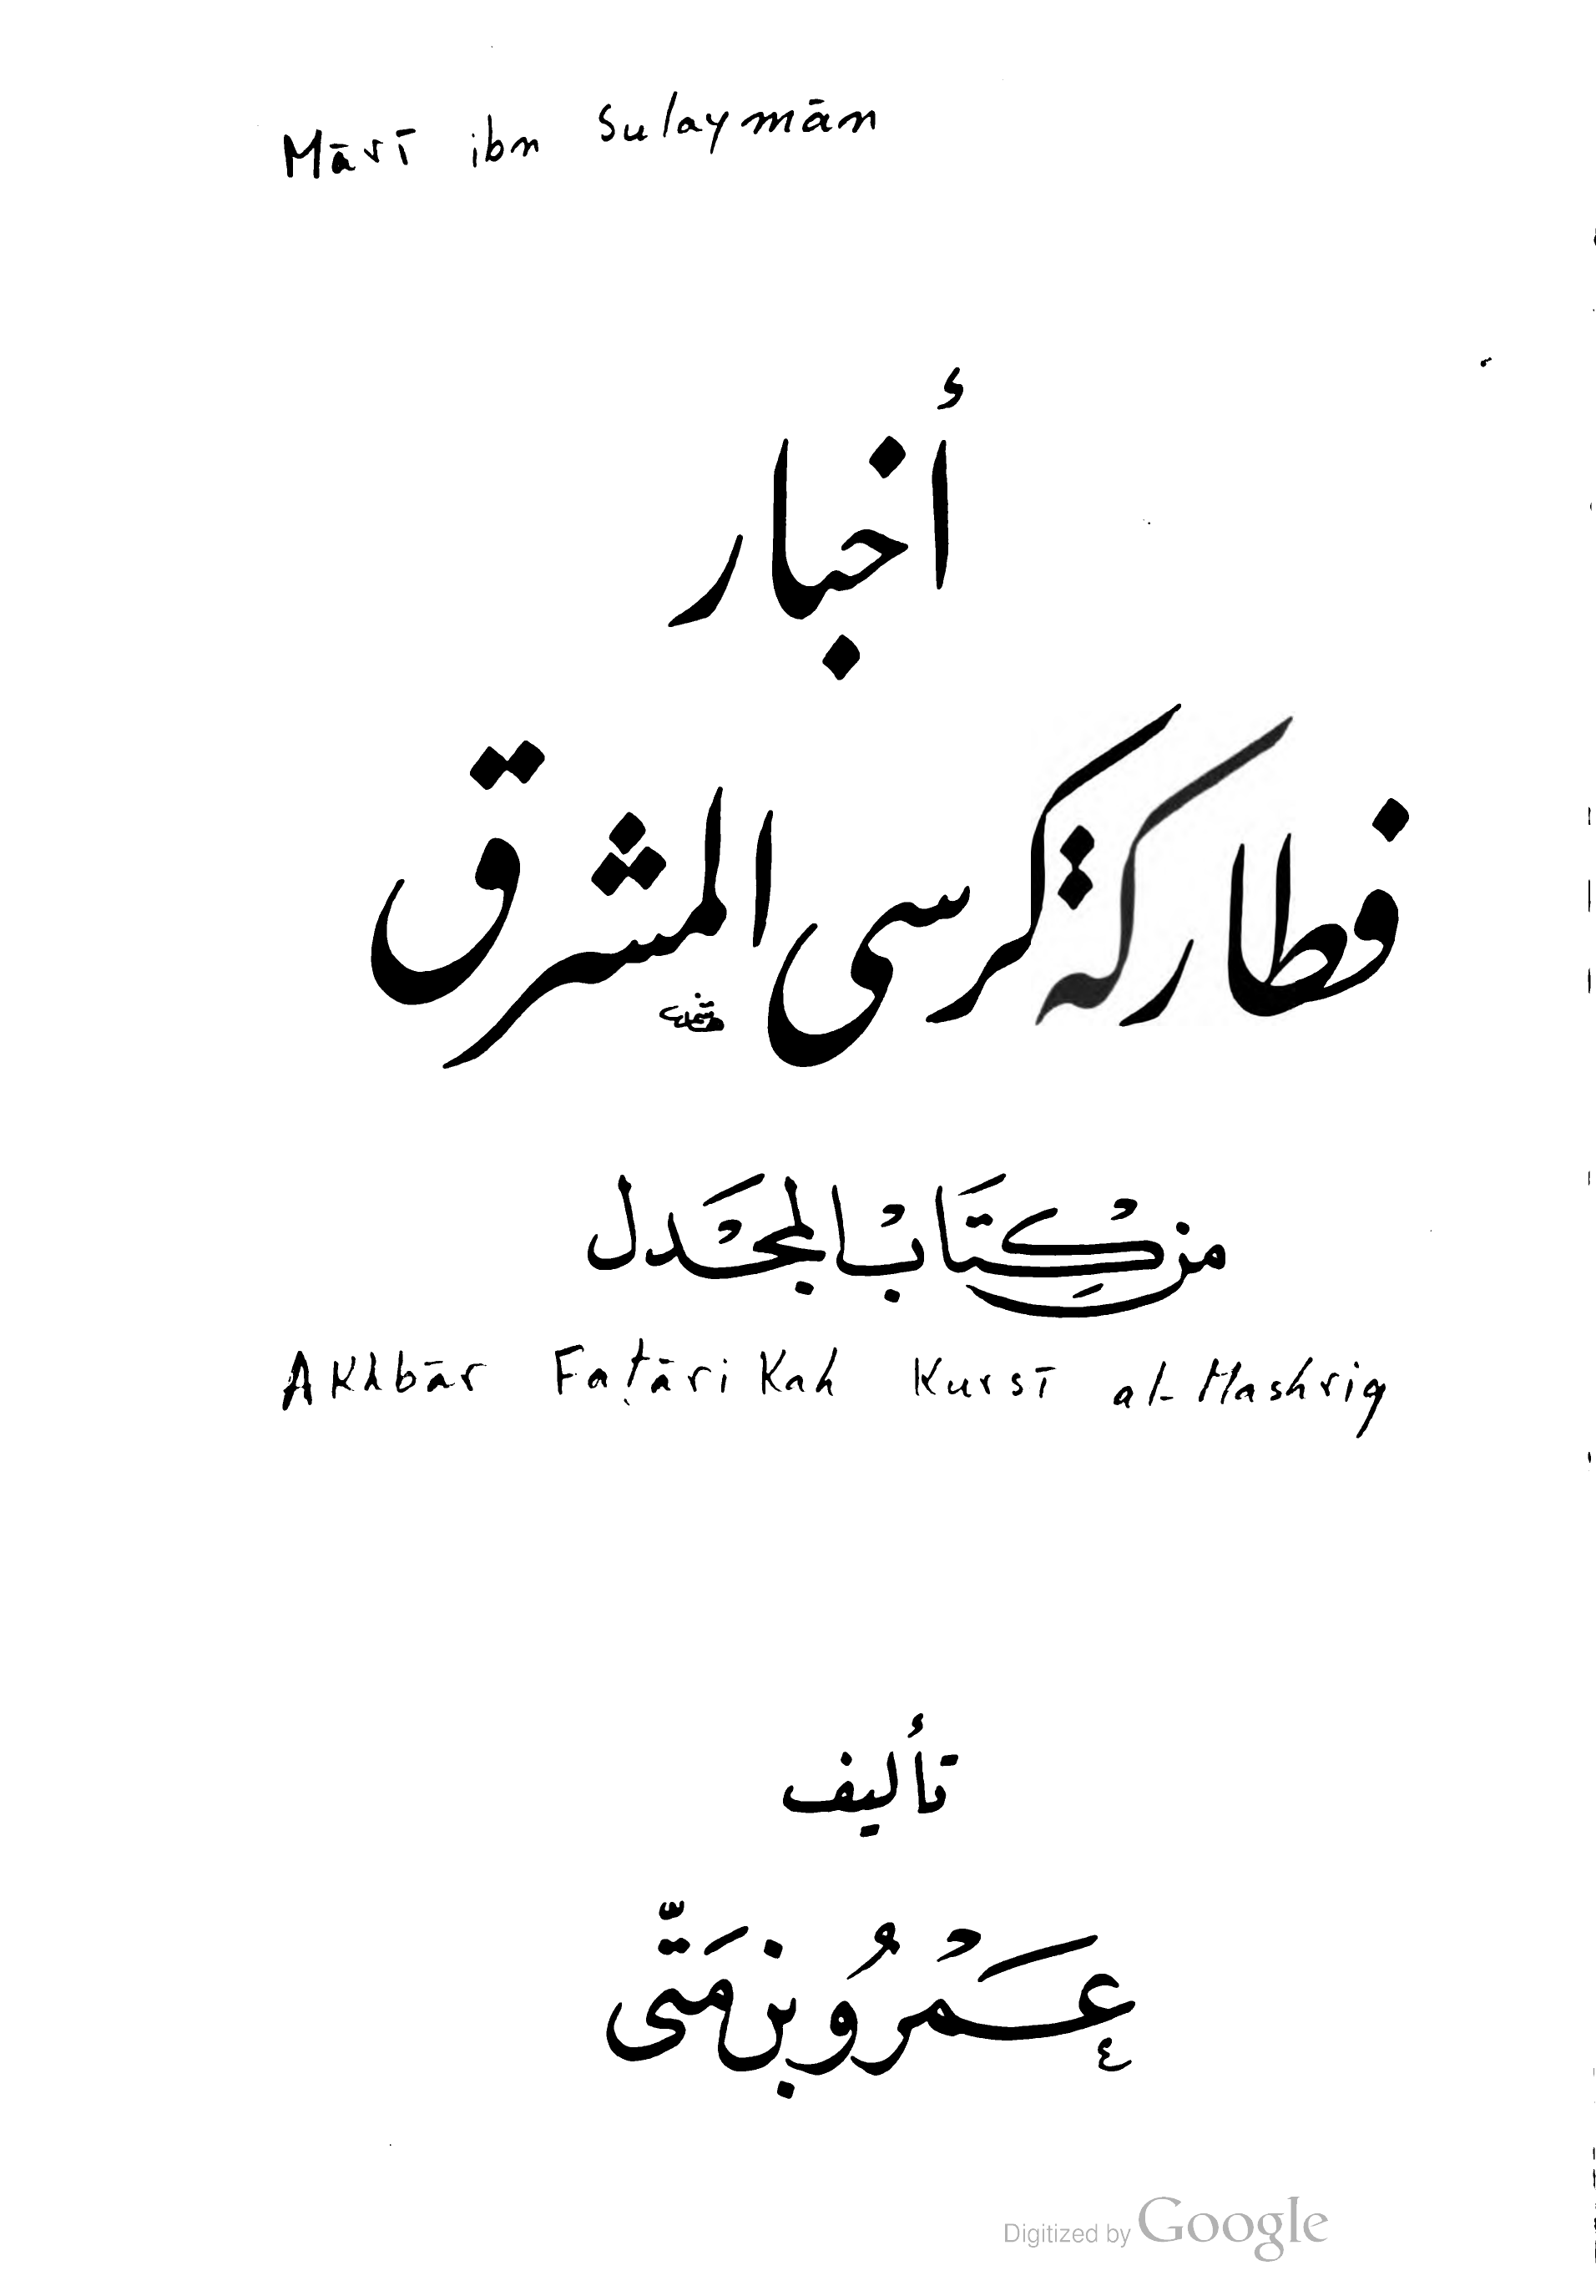 Mārī ibn Sulaymān
أخبار
فطاركة كرسى المشرق
من كِتَابْ المجْدل
Akhbār Faṭārikah Kursī al-Mashriq
تأليف
عَمْرُو بن مَتّى
Digitized by Google